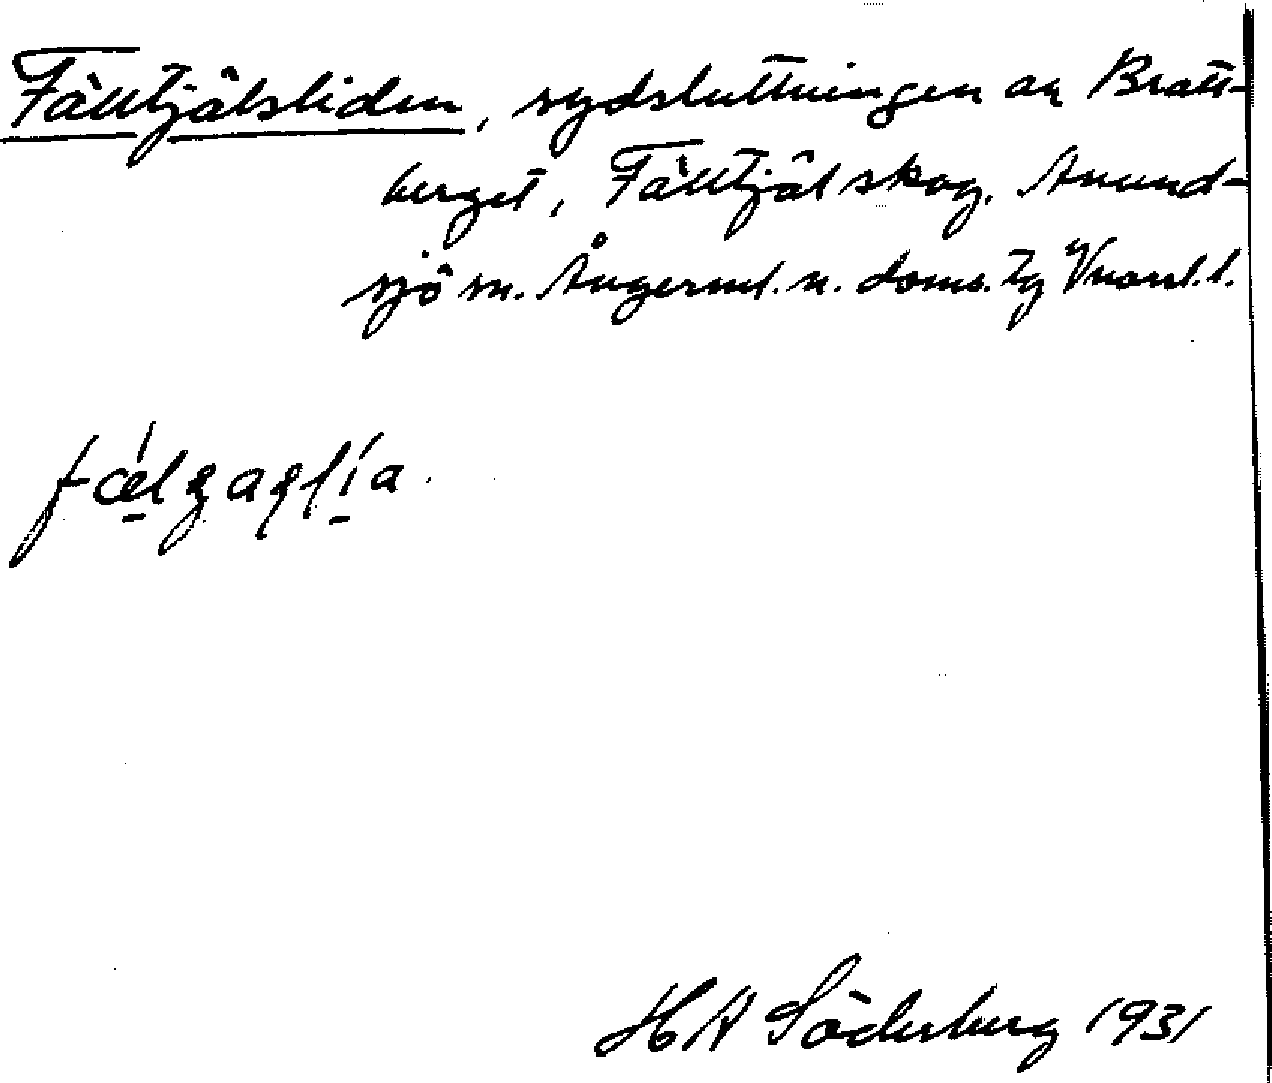 Fälltjälsliden, sydsluttningen av Bratt-
berget, Fälltjäl skog. Anund-
sjö sn. Ångerml. n. doms. tg Vnorrl. l.
H A Söderberg 1931